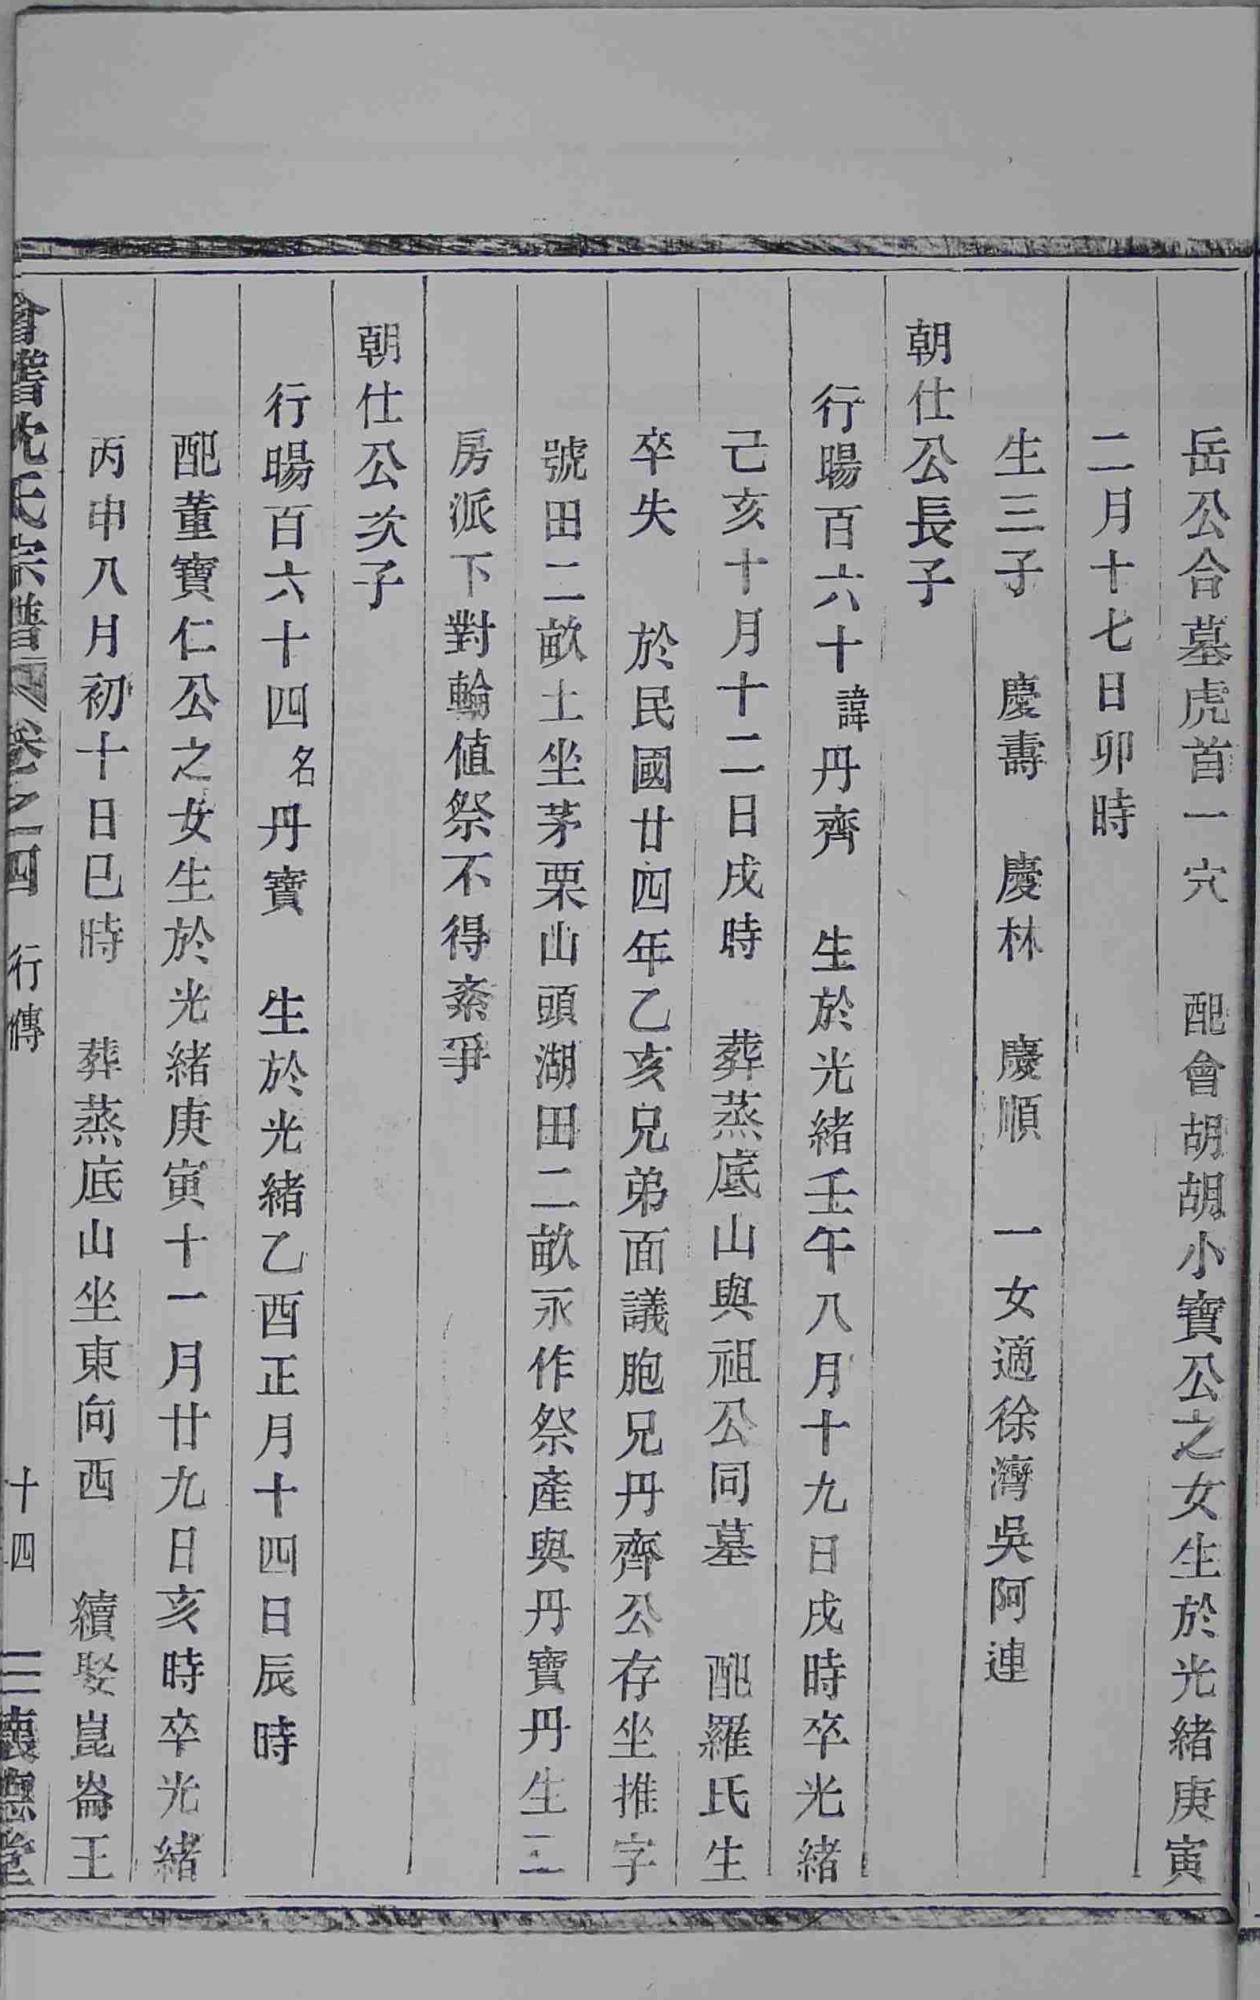 岳公合墓虎首一穴　配會胡胡小寶公之女生於光緒庚寅
二月十七日卯時
生三子　慶壽　慶林　慶順　一女適徐灣吳阿連
朝仕公長子
行暘百六十諱丹齊　生於光緒壬午八月十九日戌時卒光緒
己亥十月十二日戌時　葬蒸底山與祖公同墓　配羅氏生
卒失　於民國廿四年乙亥兄弟面議胞兄丹齊公存坐推字
號田二畝土坐茅栗山頭湖田二畝永作祭產與丹寶丹生二
房派下對輪值祭不得紊爭
朝仕公次子
行暘百六十四名丹寶　生於光緒乙酉正月十四日辰時
配董寶仁公之女生於光緒庚寅十一月廿九日亥時卒光緒
丙申八月初十日巳時　葬蒸底山坐東向西　續娶崑崙王
會稽沈氏宗譜　卷之四　行傳　十四　三槐堂